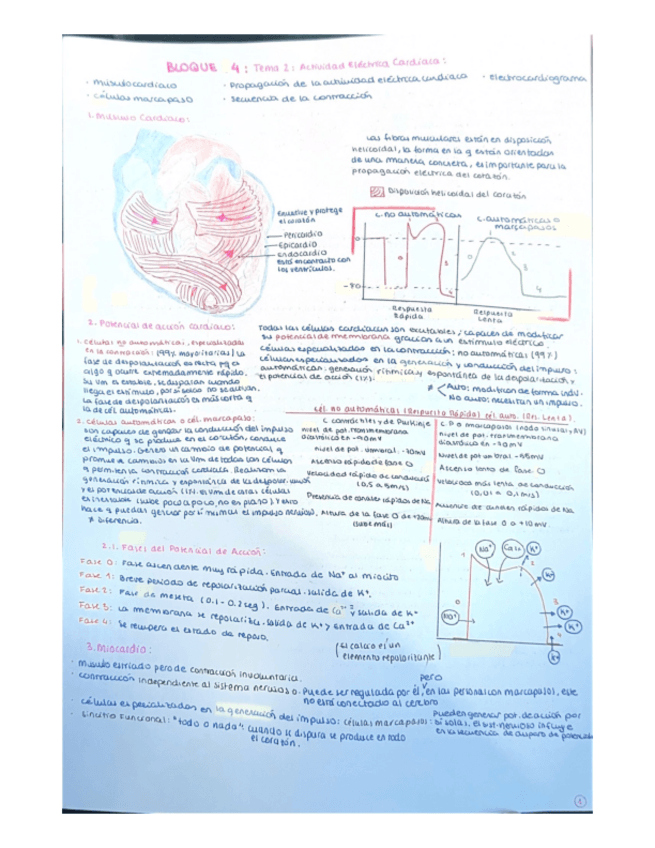 BLOQUE 4: Tema 2: Actividad Eléctrica Cardíaca:
· músculo cardíaco
· Propagación de la actividad eléctrica cardíaca
· electrocardiograma
· células marcapaso
· secuencia de la contracción
1. Músculo Cardíaco:
Las fibras musculares están en disposición
helicoidal, la forma en la q están orientadas
de una manera concreta, es importante para la
propagación eléctrica del corazón.
Disposición helicoidal del corazón
envuelve y protege
el corazón
Pericardio
Epicardio
endocardio
está en contacto con
los ventrículos.
c. no automáticas
c. automáticas o
marcapasos
0
-80
0
3
4
0
3
4
Respuesta
Rápida
Respuesta
Lenta
2. Potencial de acción cardíaco:
Todas las células cardíacas son excitables; capaces de modificar
su potencial de membrana gracias a un estímulo eléctrico.
Células especializadas en la contracción: no automáticas (99%)
células especializadas en la generación y conducción del impulso:
automáticas: generación rítmica y espontánea de la despolarización y
el potencial de acción (1%).
≠ Auto: modifican de forma indiv.
No auto: necesitan un impulso.
1. Células no automáticas, especializadas
en la contracción: (99% mayoritarias) La
fase de despolarización es recta pq es
algo q ocurre extremadamente rápido.
Su Vm es estable, se disparan cuando
llega el estímulo, por sí solas no se activan.
La fase de despolarización es más corta q
la de cél automáticas.
2. Células automáticas o cél. marcapaso:
son capaces de generar la conducción del impulso
eléctrico q se produce en el corazón, conduce
el impulso. Genera un cambio de potencial q
promueve cambios en la Vm de todas las células
q permite la contracción cardíaca. Realizan la
generación rítmica y espontánea de la despolarización
y el potencial de acción (1%). El Vm de estas células
es inestable (sube poco a poco, no es plano) y esto
hace q puedas generar por sí mismas el impulso nervioso.
≠ diferencia.
Cél. no automáticas (Respuesta Rápida)
cél. auto. (R. Lenta)
C. contráctiles y de Purkinje
nivel de pot. transmembrana
diastólico en -90mV
nivel de pot. umbral -70mV
Ascenso rápido de fase 0
Velocidad rápida de conducción
(0,5 a 5m/s)
Presencia de canales rápidos de Na
Altura de la fase 0 de +20mV
(sube más)
C. P o marcapasos (nodo sinusal, AV)
nivel de pot. transmembrana
diastólico en -70mV
Nivel de pot umbral -55mV
Ascenso lento de fase 0
Velocidad más lenta de conducción
(0,01 a 0,1m/s)
Ausencia de canales rápidos de Na
Altura de la fase 0 a +10mV.
2.1. Fases del Potencial de Acción:
Fase 0: Fase ascendente muy rápida. Entrada de Na⁺ al miocito
Fase 1: Breve período de repolarización parcial. Salida de K⁺.
Fase 2: Fase de meseta (0.1 - 0.2 seg). Entrada de Ca²⁺ y salida de K⁺
Fase 3: La membrana se repolariza. Salida de K⁺ y entrada de Ca²⁺
Fase 4: Se recupera el estado de reposo.
(El calcio es un
elemento repolarizante)
Na⁺
K⁺
1
2
0
3
K⁺
K⁺
K⁺
K⁺
3. Miocardio:
· músculo estriado pero de contracción involuntaria.
· contracción independiente al sistema nervioso. Puede ser regulada por él, pero en las personas con marcapasos, este
no está conectado al cerebro
· células especializadas en la generación del impulso: células marcapasos: pueden generar pot. de acción por
sí solas. El sist. nervioso influye
en la secuencia de disparo de potencial
· sincitio funcional: "todo o nada": cuando se dispara se produce en todo
el corazón.
1